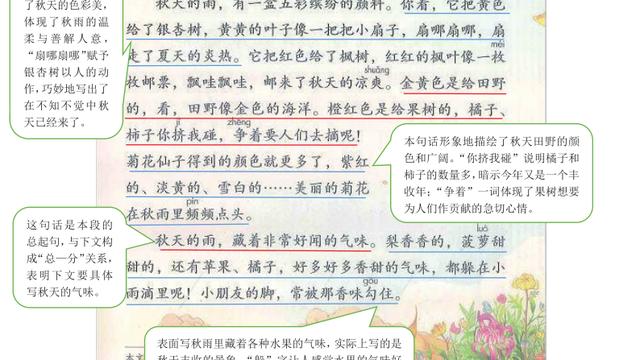 了秋天的色彩美，
体现了秋雨的温
柔与善解人意，
“扇哪扇哪”赋予
银杏树以人的动
作，巧妙地写出了
在不知不觉中秋
天已经来了。
秋天的雨，有一盒五彩缤纷的颜料。你看，它把黄色
给了银杏树，黄黄的叶子像一把把小扇子，扇哪扇哪，扇
走了夏天的炎热。它把红色给了枫树，红红的枫叶像一枚
méi
枚邮票，飘哇飘哇，邮来了秋天的凉爽。金黄色是给田野
shuāng
的，看，田野像金色的海洋。橙红色是给果树的，橘子、
jǐ zhēng
柿子你挤我碰，争着要人们去摘呢！
菊花仙子得到的颜色就更多了，紫红
的、淡黄的、雪白的……美丽的菊花
在秋雨里频频点头。
pín
本句话形象地描绘了秋天田野的颜
色和广阔。“你挤我碰”说明橘子和
柿子的数量多，暗示今年又是一个丰
收年；“争着”一词体现了果树想要
为人们作贡献的急切心情。
这句话是本段的
总起句，与下文构
成“总—分”关系，
表明下文要具体
写秋天的气味。
秋天的雨，藏着非常好闻的气味。梨香香的，菠萝甜
luó
甜的，还有苹果、橘子，好多好多香甜的气味，都躲在小
雨滴里呢！小朋友的脚，常被那香味勾住。
表面写秋雨里藏着各种水果的气味，实际上写的是